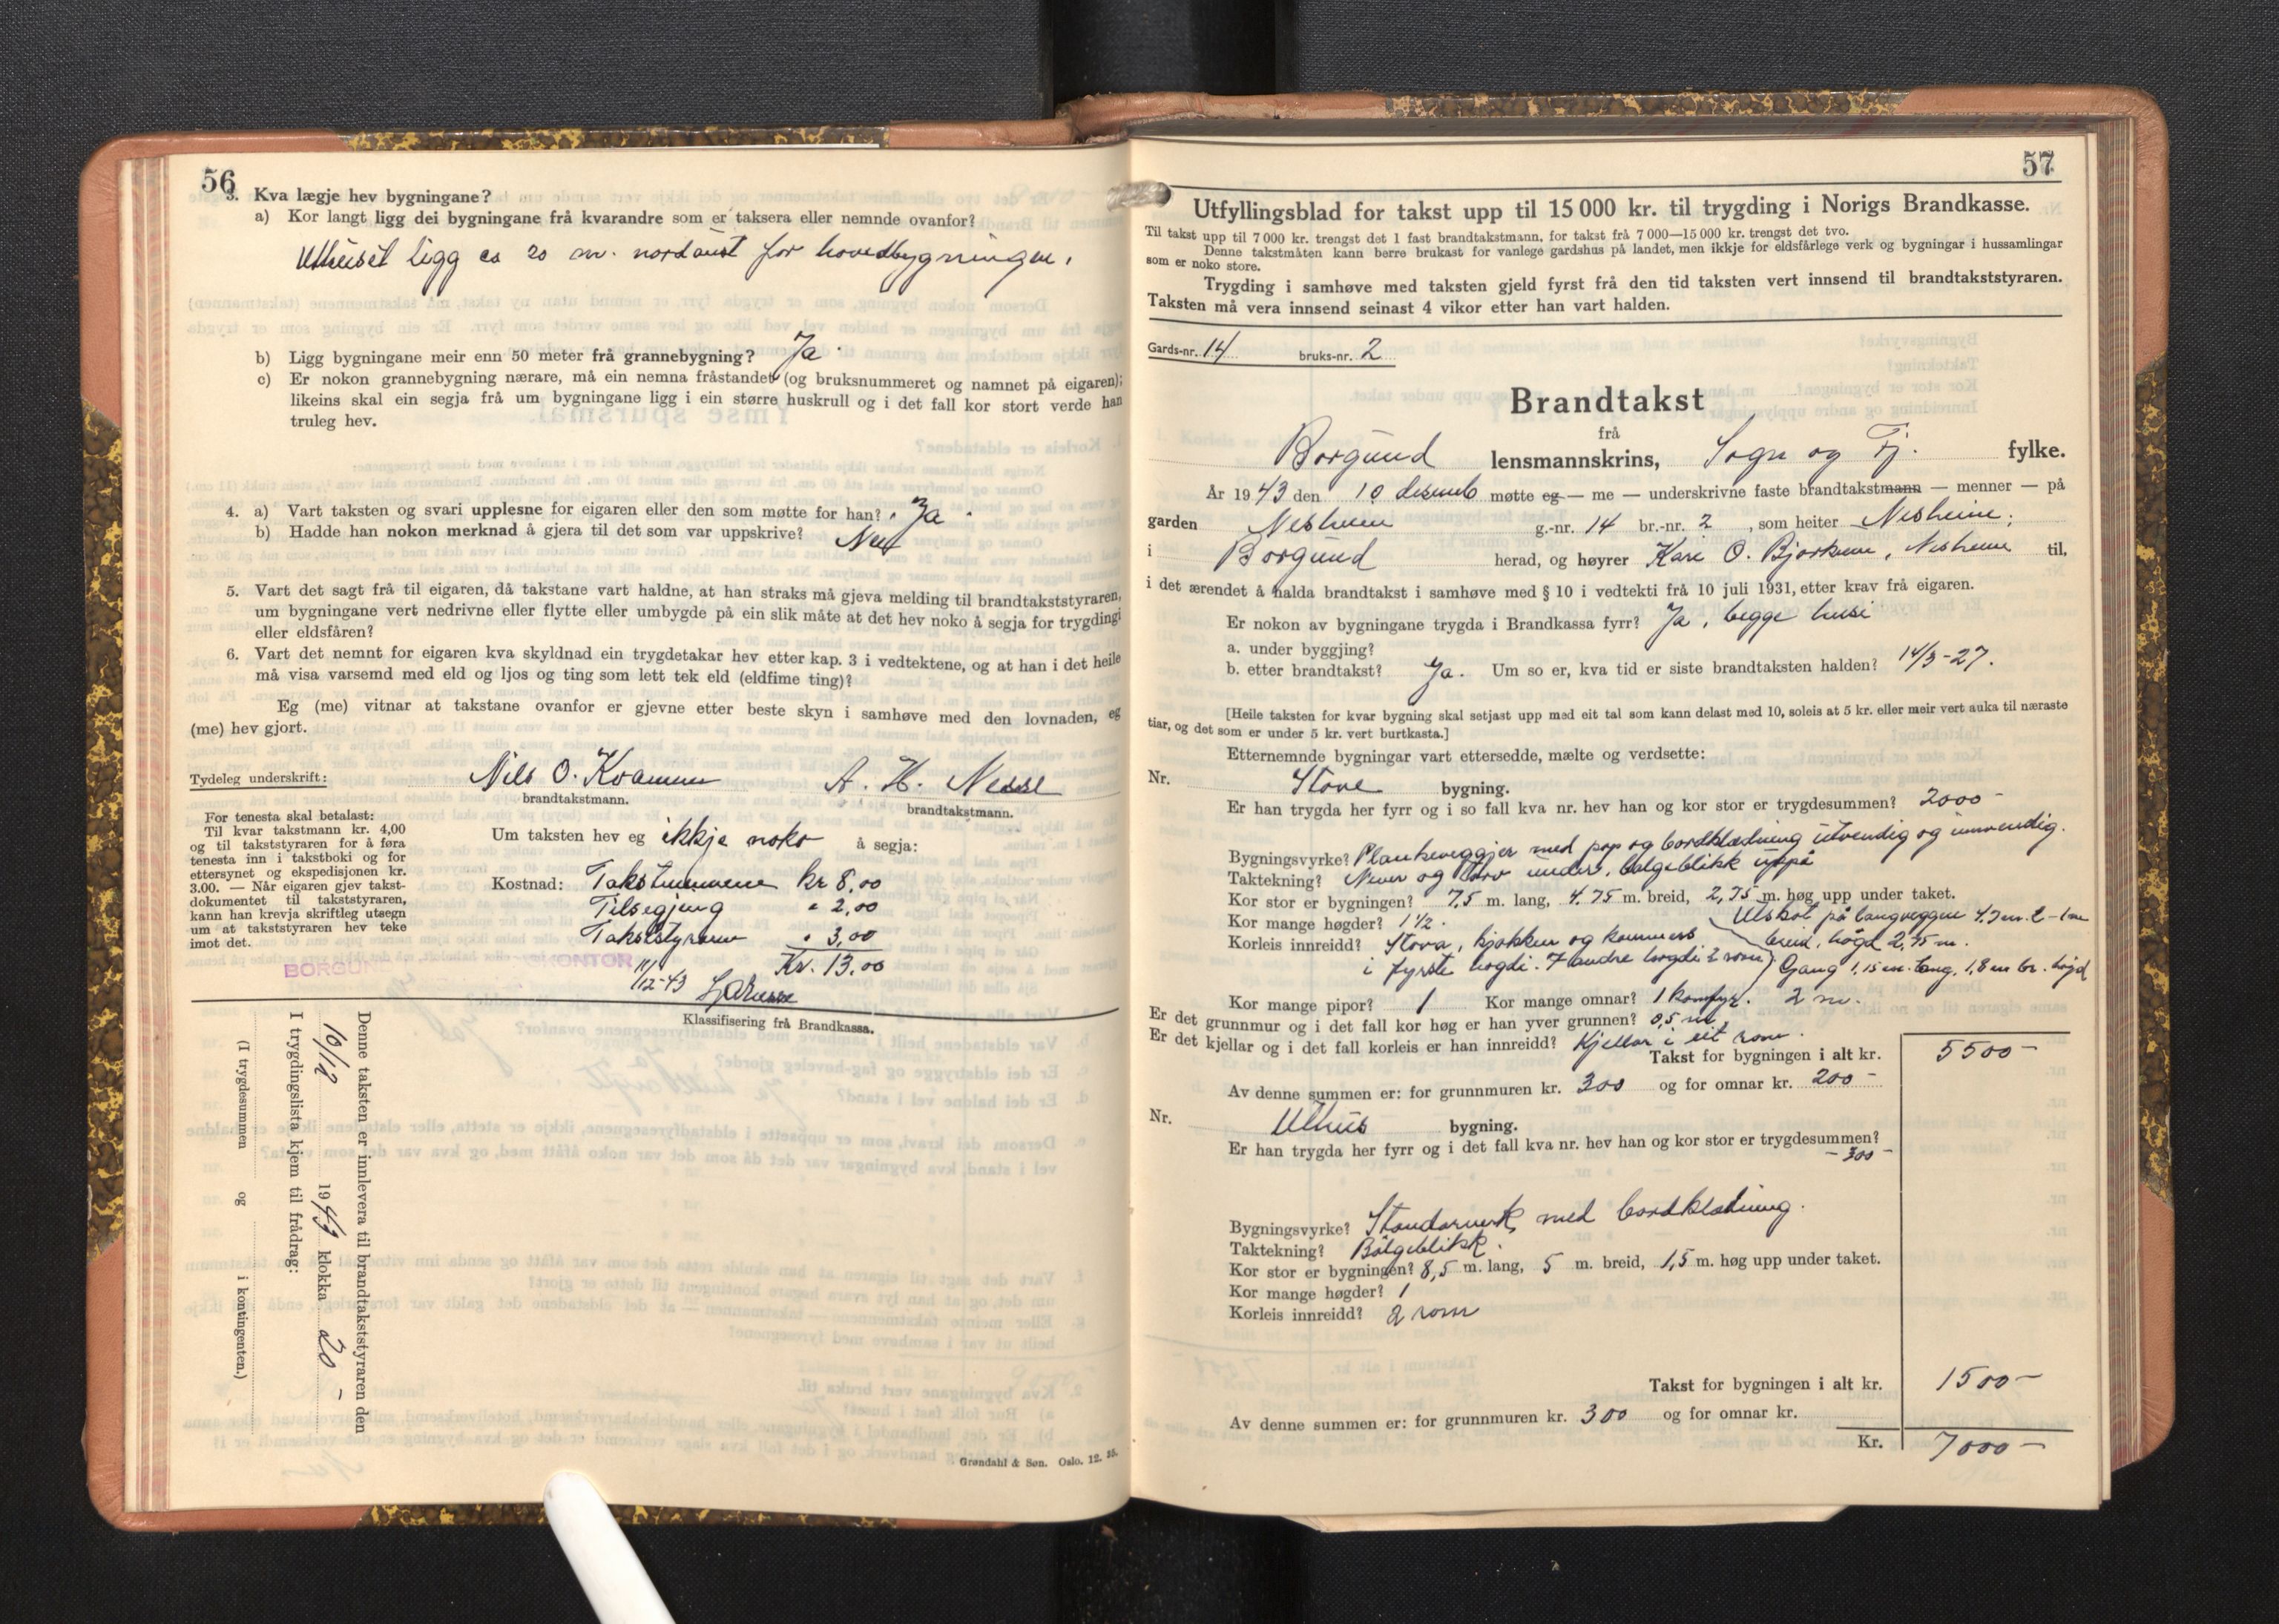 56
3. Kva lægje hev bygningane?
a) Kor langt ligg dei bygningane frå kvarandre som er taksera eller nemnde ovanfor?
Uthuset ligg ca 20 m. nordaust for hovedbygningen.
b) Ligg bygningane meir enn 50 meter frå grannebygning? Ja.
c) Er nokon grannebygning nærare, må ein nemna fråstandet (og bruksnummeret og namnet på eigaren);
likeins skal ein segja frå um bygningane ligg i ein større huskrull og i det fall kor stort verde han
truleg hev.
4. a) Vart taksten og svari upplesne for eigaren eller den som møtte for han? Ja.
b) Hadde han nokon merknad å gjera til det som var uppskrive? Nei
5. Vart det sagt frå til eigaren, då takstane vart haldne, at han straks må gjeva melding til brandtakststyraren,
um bygningane vert nedrivne eller flytte eller umbygde på ein slik måte at det hev noko å segja for trygdingi
eller eldsfåren?
6. Vart det nemnt for eigaren kva skyldnad ein trygdetakar hev etter kap. 3 i vedtektene, og at han i det heile
må visa varsemd med eld og ljos og ting som lett tek eld (eldfime ting)?
Eg (me) vitnar at takstane ovanfor er gjevne etter beste skyn i samhøve med den lovnaden, eg
(me) hev gjort.
Tydeleg underskrift: Nils O. Kvamme A. H. Nesse
brandtakstmann. brandtakstmann.
For tenesta skal betalast:
Til kvar takstmann kr. 4,00
og til takststyraren for å føra
tenesta inn i takstboki og for
ettersynet og ekspedisjonen kr.
3.00. — Når eigaren gjev takst-
dokumentet til takststyraren,
kann han krevja skriftleg utsegn
um at takststyraren hev teke
imot det.
Um taksten hev eg ikkje noko å segja:
Kostnad: Takstmennene kr 8,00
Tilsegjing " 2,00
Takststyraren " 3,00
Kr. 13,00
11/12-43
Klassifisering frå Brandkassa.
Denne taksten er innlevera til brandtakststyraren den
10/12 1943 klokka 20 -
I trygdingslista kjem til frådrag:
(I trygdesummen og i kontingenten.)
Grøndahl & Søn. Oslo. 12. 35.
57
Utfyllingsblad for takst upp til 15 000 kr. til trygding i Norigs Brandkasse.
Til takst upp til 7 000 kr. trengst det 1 fast brandtakstmann, for takst frå 7 000—15 000 kr. trengst det tvo.
Denne takstmåten kann berre brukast for vanlege gardshus på landet, men ikkje for eldsfårlege verk og bygningar i hussamlingar
som er noko store.
Trygding i samhøve med taksten gjeld fyrst frå den tid taksten vert innsend til brandtakststyraren.
Taksten må vera innsend seinast 4 vikor etter han vart halden.
Gards-nr. 14 bruks-nr. 2
Brandtakst
frå
Borgund lensmannskrins, Sogn og Fj. fylke.
År 1943 den 10 desemb møtte eg — me — underskrivne faste brandtakstmann — menner — på
garden Nesheim g.-nr. 14 br.-nr. 2, som heiter Nesheim;
i Borgund herad, og høyrer Kari O. Bjørkum, Nesheim til,
i det ærendet å halda brandtakst i samhøve med § 10 i vedtekti frå 10 juli 1931, etter krav frå eigaren.
Er nokon av bygningane trygda i Brandkassa fyrr? Ja, begge husi
a. under byggjing?
b. etter brandtakst? Ja. Um so er, kva tid er siste brandtaksten halden? 14/3-27.
[Heile taksten for kvar bygning skal setjast upp med eit tal som kann delast med 10, soleis at 5 kr. eller meir vert auka til næraste
tiar, og det som er under 5 kr. vert burtkasta.]
Etternemnde bygningar vart ettersedde, mælte og verdsette:
Nr. Stove bygning.
Er han trygda her fyrr og i so fall kva nr. hev han og kor stor er trygdesummen? 2000-
Bygningsvyrke? Plankeveggjer med pap og bordklædning utvendig og innvendig.
Taktekning? Never og torv under, bølgeblikk uppå
Kor stor er bygningen? 7,5 m. lang, 4.75 m. breid, 2,75 m. høg upp under taket.
Kor mange høgder? 1½. Utskot på langveggen 4.7 m. l - 1 m
Korleis innreidd? Stova, kjøkken og kammers breid, høgd 2,75 m.
i fyrste høgdi. I andre høgdi 2 rom. Gang 1,15 m. lang, 1,8 m br. høgd
Kor mange pipor? 1 Kor mange omnar? 1 komfyr. 2 m.
Er det grunnmur og i det fall kor høg er han yver grunnen? 0,5 m
Er det kjellar og i det fall korleis er han innreidd? Kjellar i eit rom.
Takst for bygningen i alt kr. 5500-
Av denne summen er: for grunnmuren kr. 300 og for omnar kr. 200-
Nr. Uthus bygning.
Er han trygda her fyrr og i det fall kva nr. hev han og kor stor er trygdesummen?
-300-
Bygningsvyrke? Standarverk med bordklædning.
Taktekning? Bølgeblikk.
Kor stor er bygningen? 8,5 m. lang, 5 m. breid, 1,5 m. høg upp under taket.
Kor mange høgder? 1
Korleis innreidd? 2 rom
Takst for bygningen i alt kr. 1500-
Av denne summen er: for grunnmuren kr. 300 og for omnar kr.
Kr. 7000-